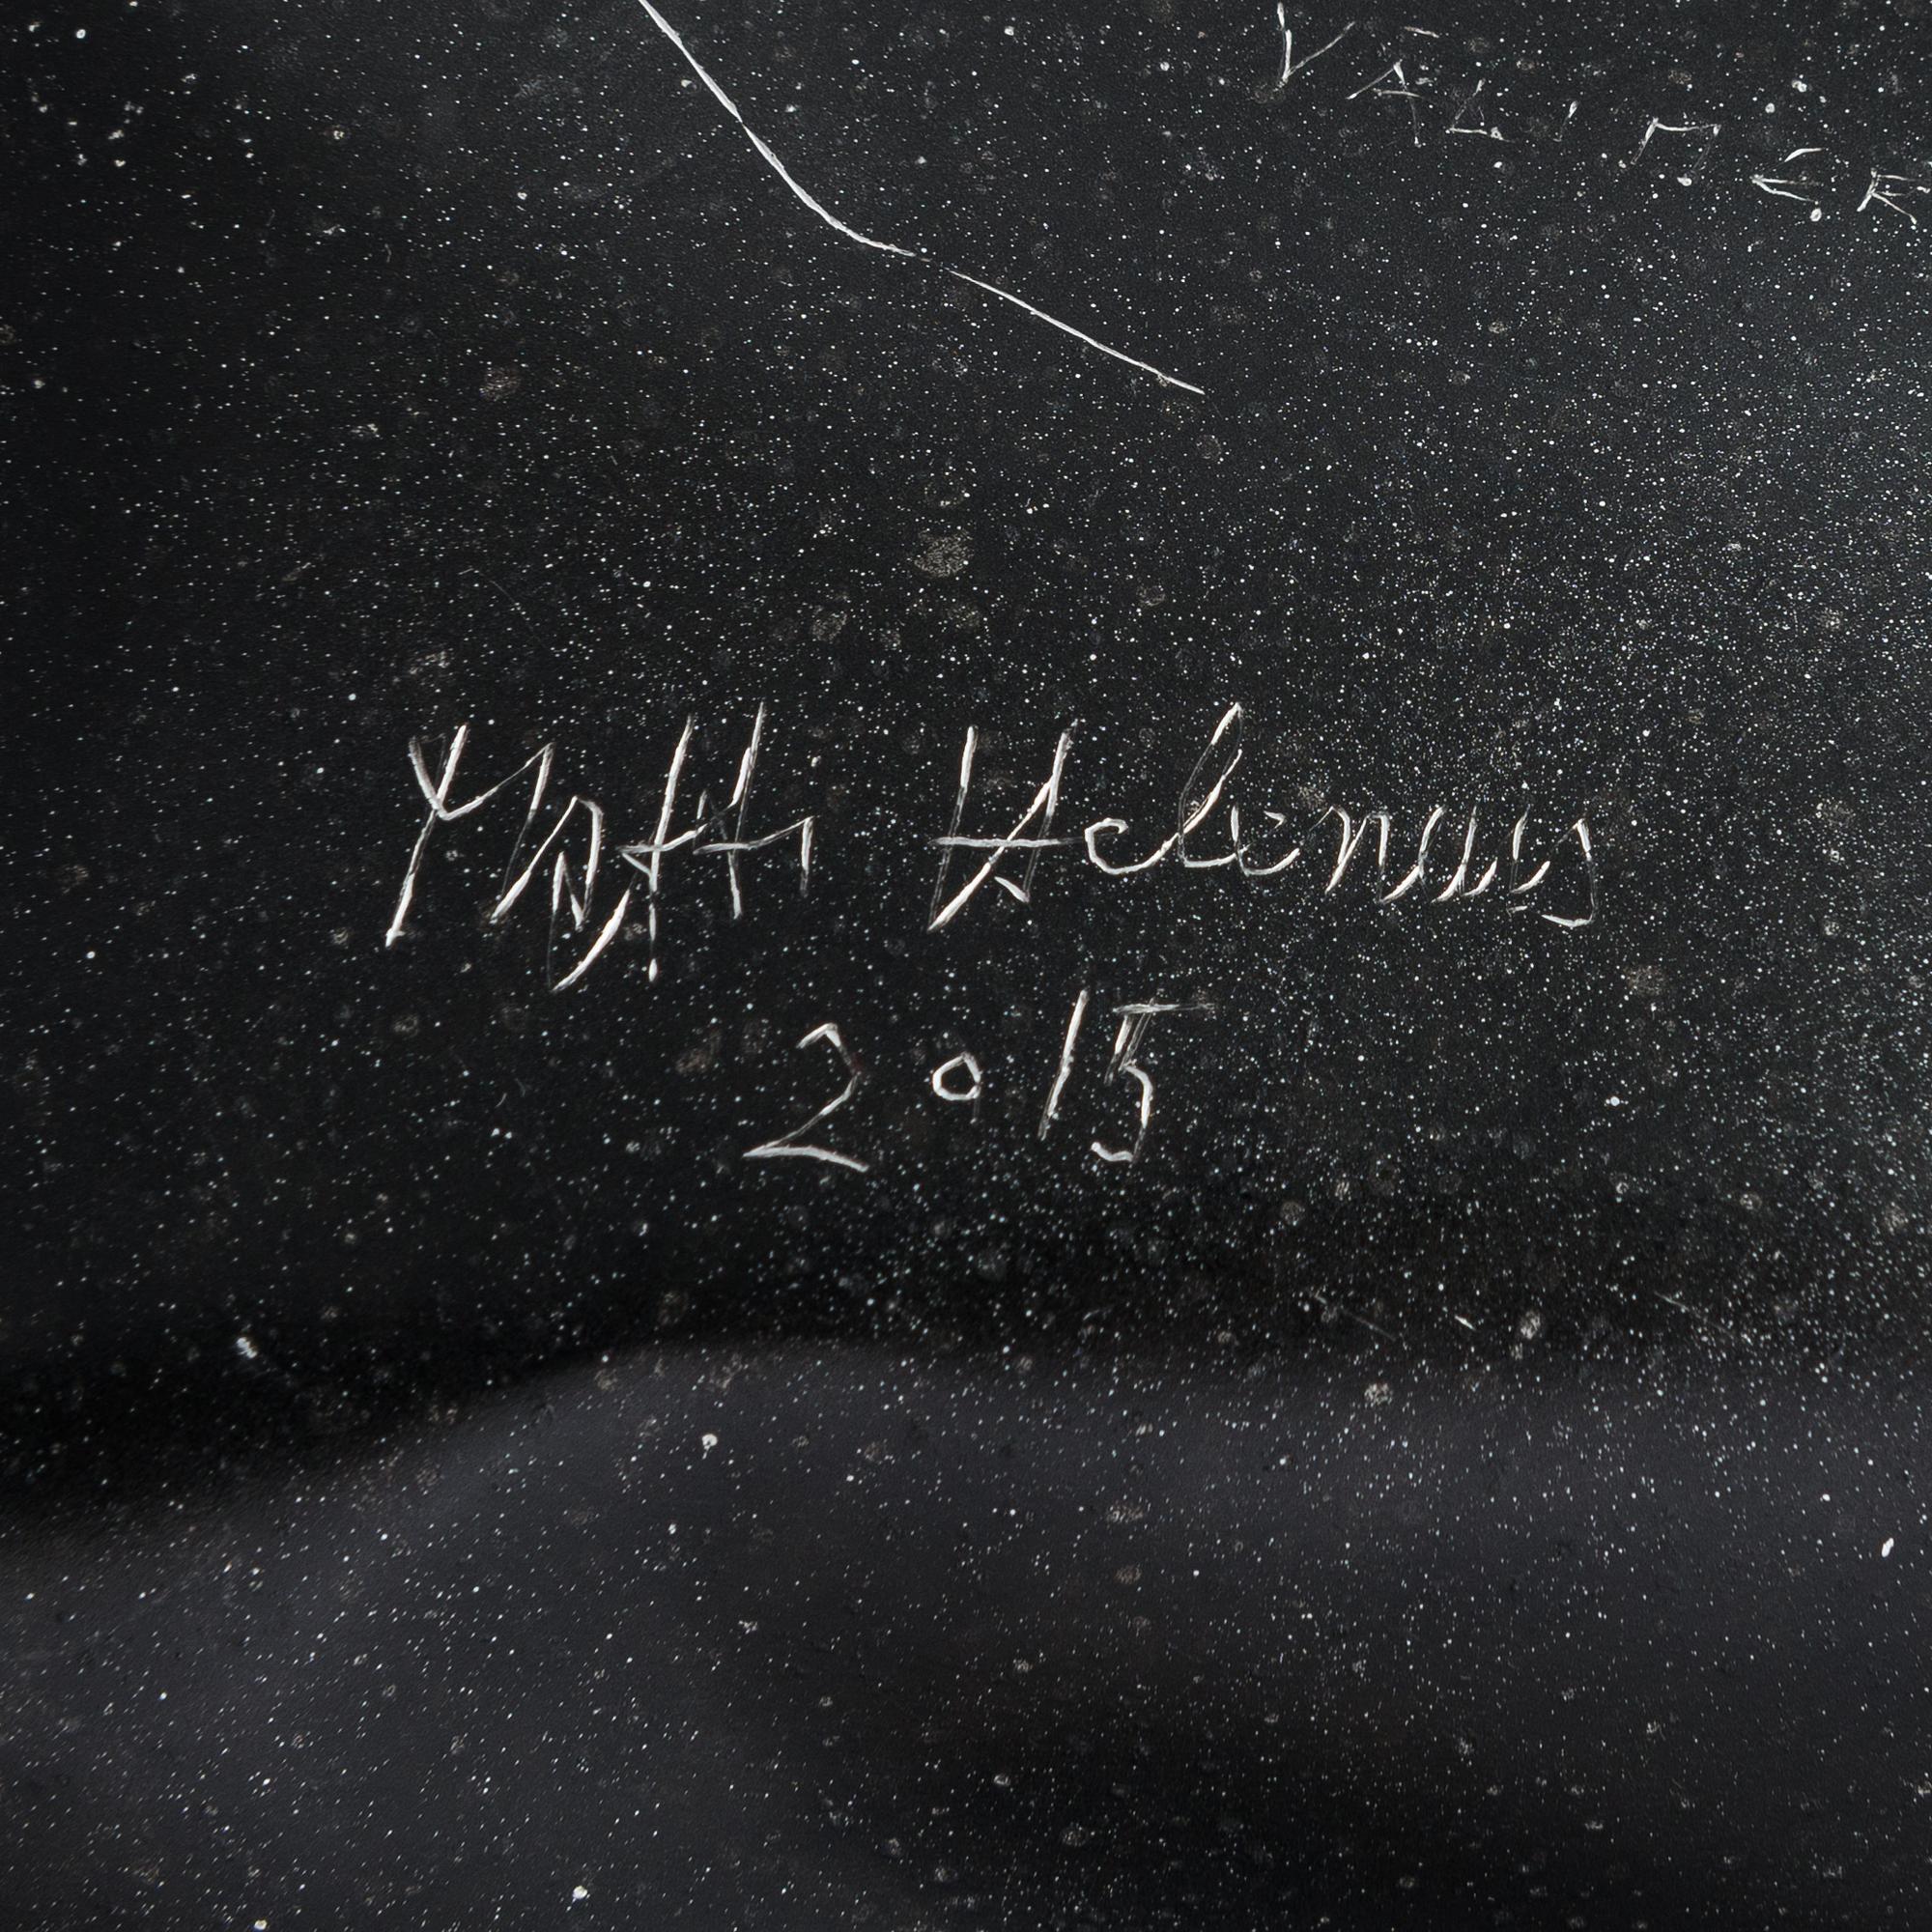 VALMER
Matti Helenius
2015